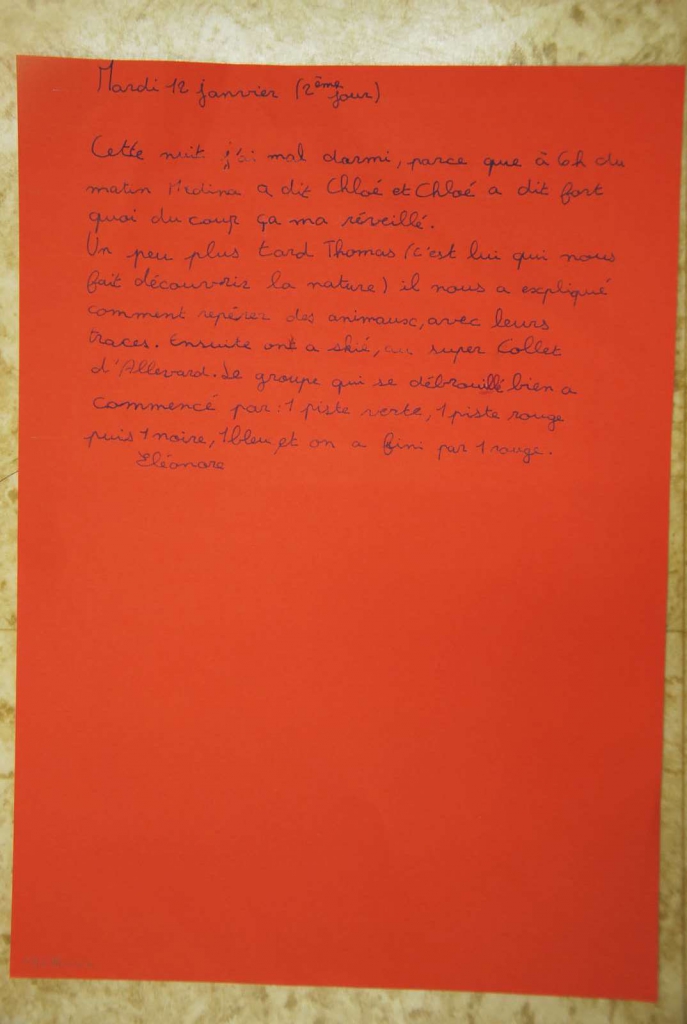 Mardi 12 janvier (2ème jour)
Cette nuit j'ai mal darmi, parce que à 6h du
matin a dit Chloé et Chloé a dit fort
quoi du coup ça ma réveillé.
Un peu plus tard Thomas (c'est lui qui nous
fait découvrir la nature) il nous a expliqué
comment repérer des animaux, avec leurs
traces. Ensuite ont a skié, au super Collet
d'Allevard. Le groupe qui se débrouillé bien a
commencé par : 1 piste verte, 1 piste rouge
puis 1 noire, 1 bleu, et on a fini par 1 rouge.
Eléonore